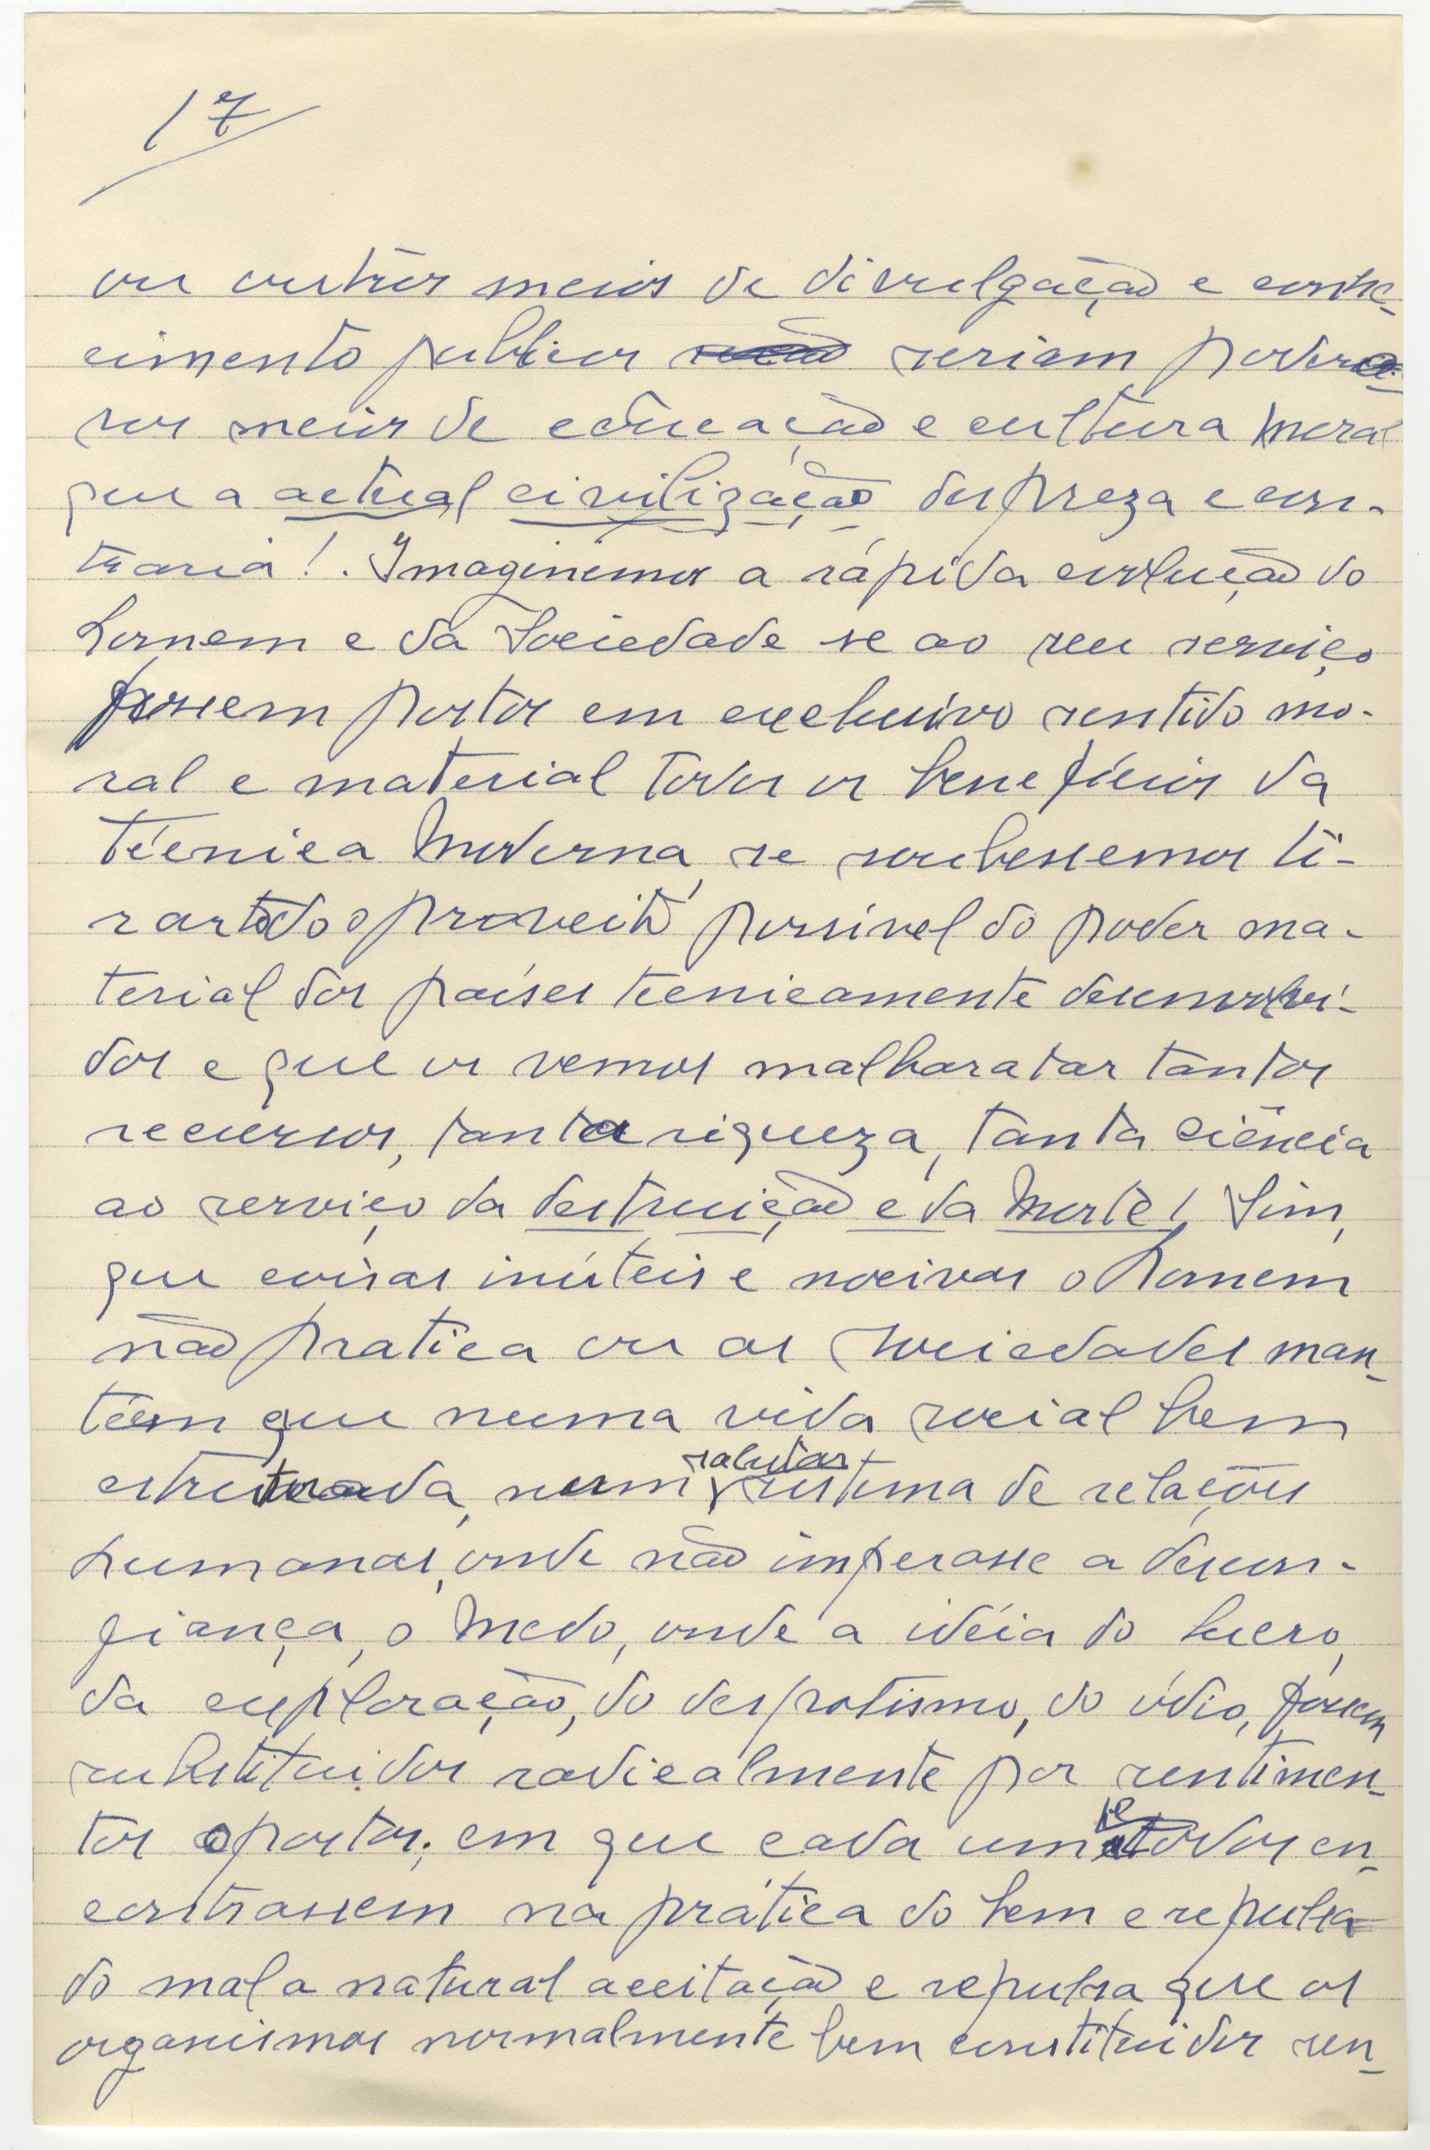 17
ou outros meios de divulgação e conhe-
cimento publico seriam podero-
sos meios de educação e cultura moral
que a actual civilização despreza e con-
traria!. Imaginemos a rápida evolução do
homem e da Sociedade se ao seu serviço
fossem postos em exclusivo sentido mo-
ral e material todos os benefícios da
técnica moderna, se soubessemos ti-
rar todo o proveito possivel do poder ma-
terial dos países tecnicamente desenvolvi-
dos e que os vemos malbaratar tantos
recursos, tanta riqueza, tanta ciência
ao serviço da destruição e da Morte! Sim,
que coisas inúteis e nocivas o homem
não pratica ou as sociedades man-
têem que numa vida social bem
estruturada, num salutar sistema de relações
humanas, onde não imperasse a descon-
fiança, o medo, onde a idéia do lucro,
da exploração, do despotismo, do ódio, fossem
substituidos radicalmente por sentimen-
tos opostos; em que cada um e todos en-
contrassem na prática do bem e repulsa
do mal a natural aceitação e repulsa que os
organismos normalmente bem constituidos sen-